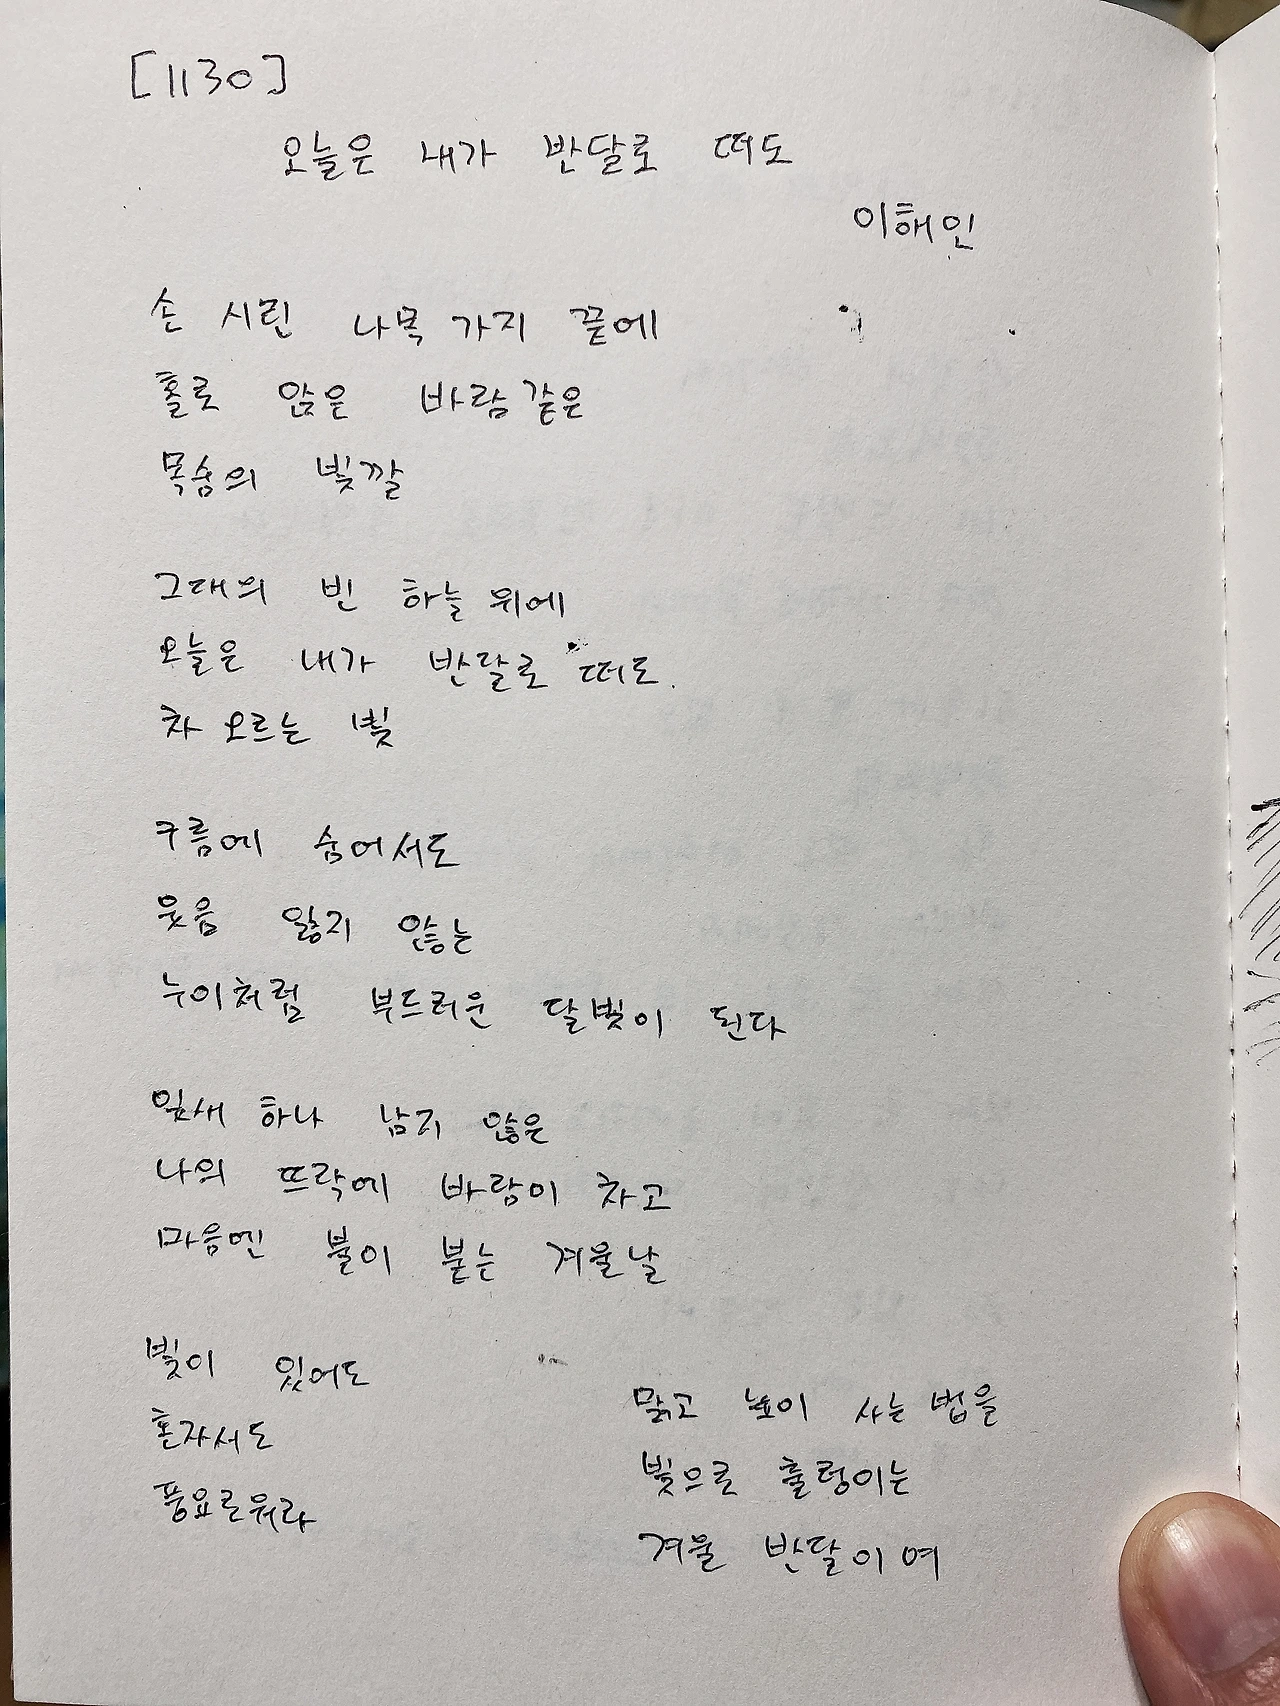 [1130]
오늘은 내가 반달로 떠도
이해인
손 시린 나목 가지 끝에
홀로 앉은 바람같은
목숨의 빛깔
그대의 빈 하늘 위에
오늘은 내가 반달로 떠도
차 오르는 빛
구름에 숨어서도
웃음 잃지 않는
누이처럼 부드러운 달빛이 된다
잎새 하나 남지 않은
나의 뜨락에 바람이 차고
마음엔 불이 붙는 겨울날
빛이 있어도
혼자서도
풍요로워라
맑고 높이 사는 법을
빛으로 출렁이는
겨울 반달이여